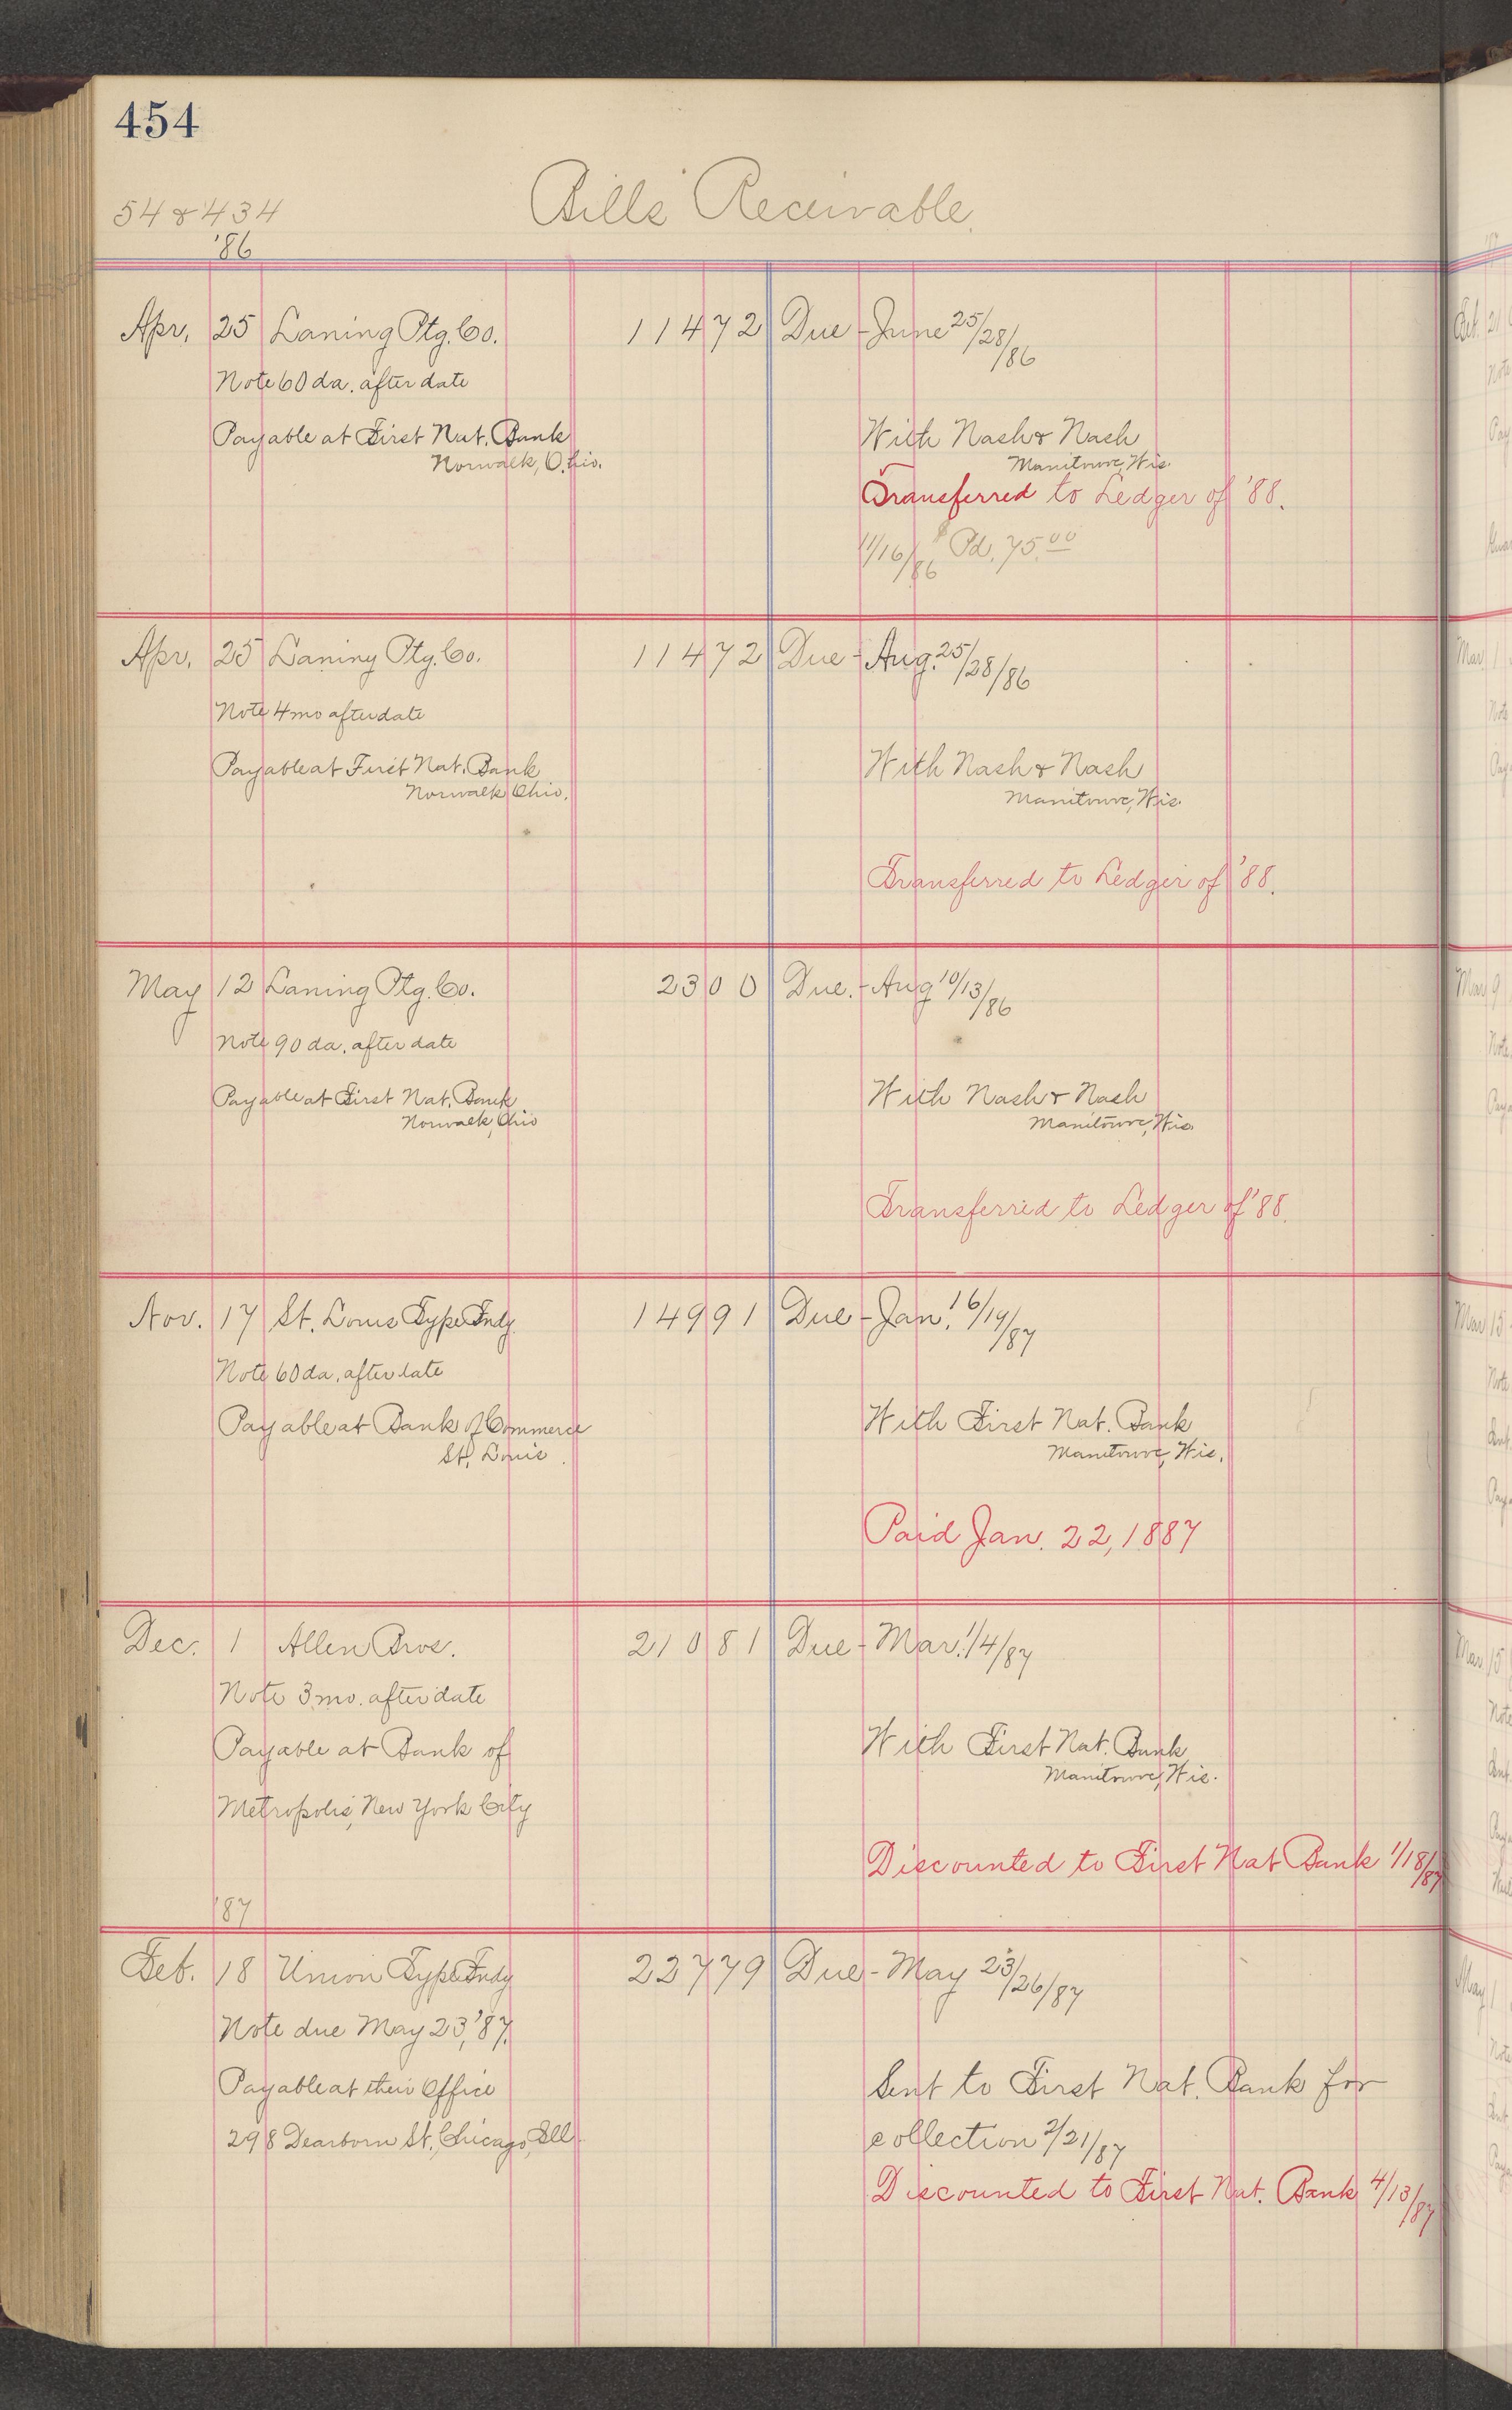 454
54 & 434
Bills Receivable.
'86
Apr. 25 Laning Ptg. Co. 114 72 Due - June 25/28/86
Note 60 da. after date
Payable at First Nat. Bank With Nash & Nash
Norwalk, Ohio. Manitowoc, Wis.
Transferred to Ledger of '88.
11/16/86 Pd. 75.00
Apr. 25 Laning Ptg. Co. 114 72 Due - Aug. 25/28/86
Note 4 mo after date
Payable at First Nat. Bank With Nash & Nash
Norwalk Ohio. Manitowoc, Wis.
Transferred to Ledger of '88.
May 12 Laning Ptg. Co. 23 00 Due. - Aug 10/13/86
Note 90 da. after date
Payable at First Nat. Bank With Nash & Nash
Norwalk, Ohio Manitowoc, Wis.
Transferred to Ledger of '88.
Nov. 17 St. Louis Type Fndy 149 91 Due - Jan. 16/19/87
Note 60 da. after date
Payable at Bank of Commerce With First Nat. Bank
St. Louis Manitowoc, Wis.
Paid Jan. 22, 1887
Dec. 1 Allen Bros. 210 81 Due - Mar. 1/4/87
Note 3 mo. after date
Payable at Bank of With First Nat. Bank
Manitowoc, Wis.
Metropolis, New York City
Discounted to First Nat Bank 1/18/87
'87
Feb. 18 Union Type Fndy 227 79 Due - May 23/26/87
Note due May 23, '87.
Payable at their Office Sent to First Nat. Bank for
298 Dearborn St., Chicago, Ill collection 2/21/87
Discounted to First Nat. Bank 4/13/87